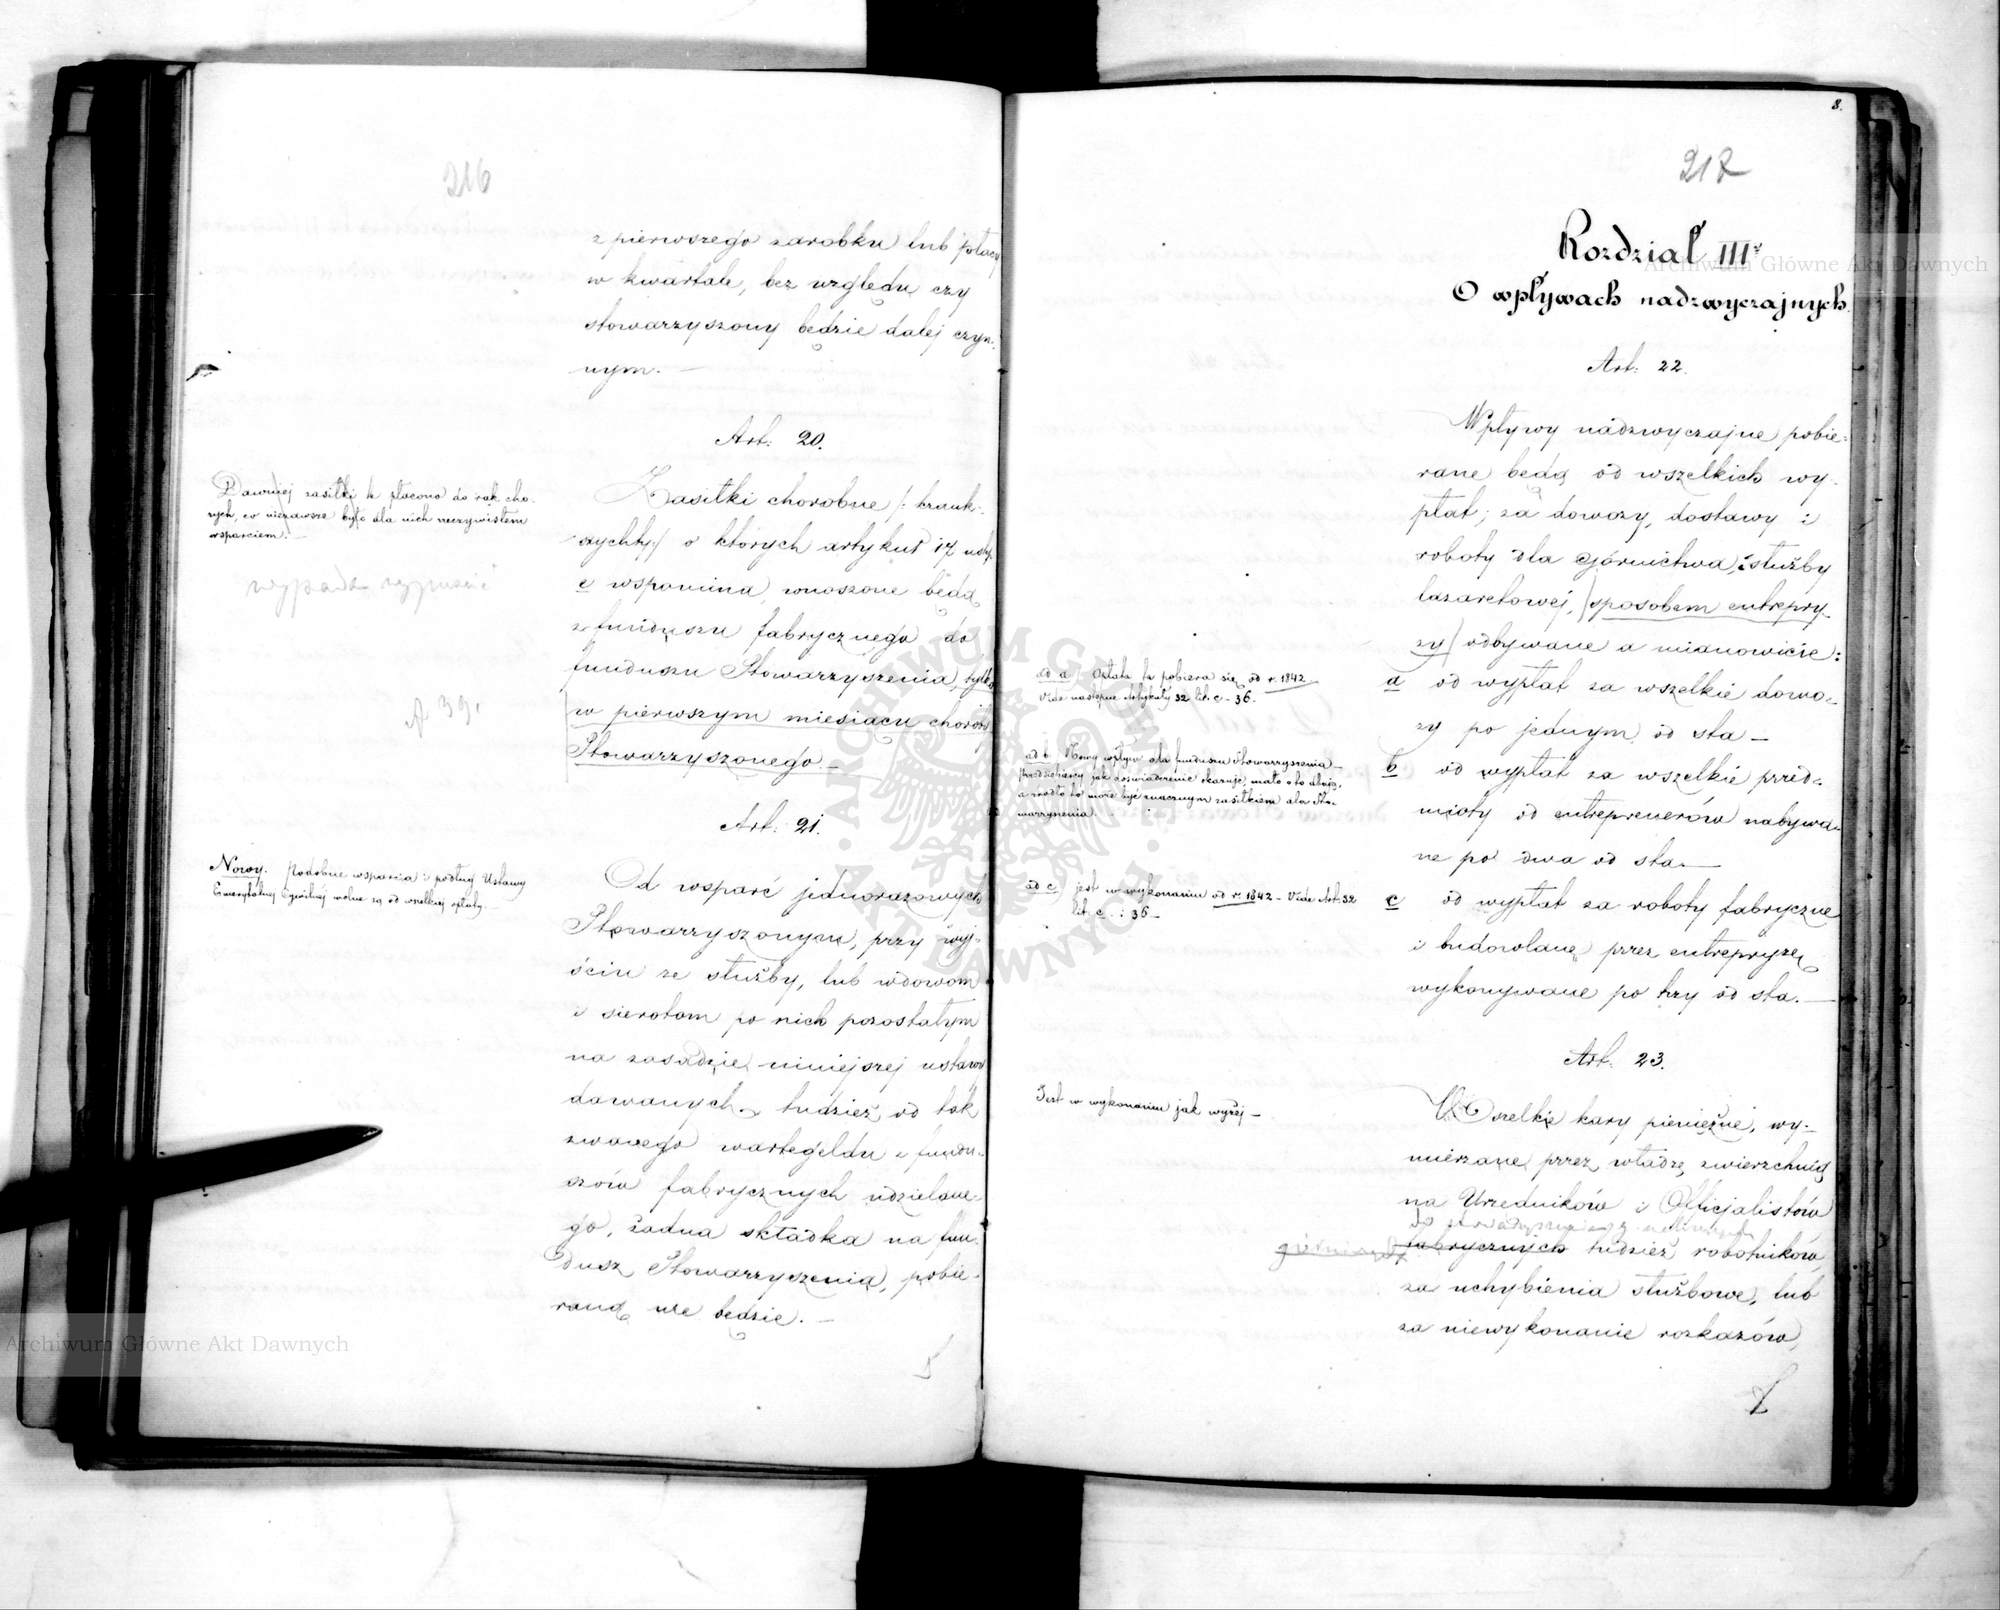 216
z pierwszego zarobku lub płacy
w kwartale, bez względu czy
stowarzyszony będzie dalej czyn-
nym. —
Art: 20.
Dawniej zasiłki te płacono do rąk cho-
rych, co niezawsze było dla nich rzeczywistem
wsparciem. —
wypada wypuścić
A 39.
Zasiłki chorobne /: krank-
aychty :/ o których artykuł 17 ustęp
c wspomina, wnoszone będą
z funduszu fabrycznego do
funduszu Stowarzyszenia, tylko
w pierwszym miesiącu choroby
Stowarzyszonego. —
Art: 21.
Nowy. Podobne wsparcia i podług Ustawy
Emerytalnej Cywilnej wolne są od wszelkiej opłaty. —
Od wsparć jednorazowych
Stowarzyszonym, przy wyj-
ściu ze służby, lub wdowom
i sierotom po nich pozostałym
na zasadzie niniejszej ustawy
dawanych, tudzież od tak
zwanego wartegeldu z fundu-
szów fabrycznych udzielane-
go, żadna składka na fun-
dusz Stowarzyszenia, pobie-
raną nie będzie. —
8.
217
Rozdział III
O wpływach nadzwyczajnych.
Art: 22.
Wpływy nadzwyczajne pobie-
rane będą od wszelkich wy-
płat; za dowozy, dostawy i
roboty dla Górnictwa, i służby
lazaretowej, sposobem entrepry-
zy odbywane a mianowicie:
ad a) Opłata ta pobiera się od r. 1842
Vide następne Artykuły 32 lit. c - 36.
a od wypłat za wszelkie dowo-
zy po jednym od sta —
ad b. Nowy wpływ dla funduszu Stowarzyszenia —
Przedsiębiorcy jak doświadczenie okazuje, mało o to dbają,
a źródło to może być znacznym zasiłkiem dla Sto-
warzyszenia.
b od wypłat za wszelkie przed-
mioty od entreprenerów nabywa-
ne po dwa od sta. —
ad c) jest w wykonaniu od r. 1842 - Vide Art. 32
lit. c : 36 —
c od wypłat za roboty fabryczne
i budowlane przez entrepryzę
wykonywane po trzy od sta. —
Art: 23.
Jest w wykonaniu jak wyżej —
Wszelkie kary pieniężne, wy-
mierzane przez władzę zwierzchnią
na Urzędników i Officjalistów
fabrycznych tudzież robotników,
za uchybienia służbowe, lub
za niewykonanie rozkazów,
Archiwum Główne Akt Dawnych
Archiwum Główne Akt Dawnych
ARCHIWUM GŁÓWNE AKT DAWNYCH